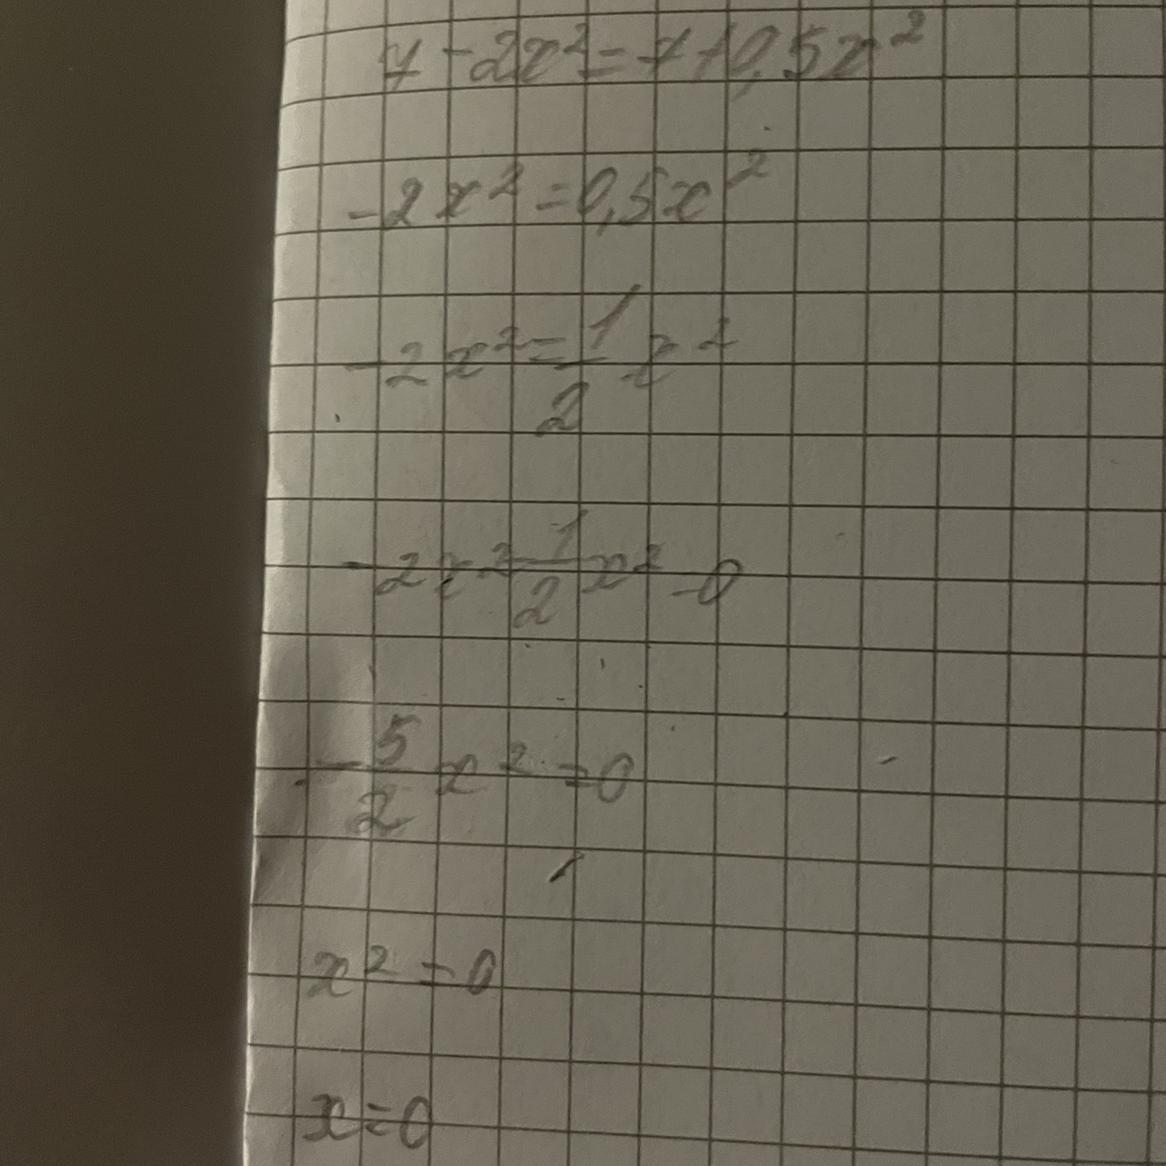 7-2x²=7+0,5x²
-2x²=0,5x²
-2x²=1/2x²
-2x²-1/2x²=0
-5/2x²=0
x²=0
x=0